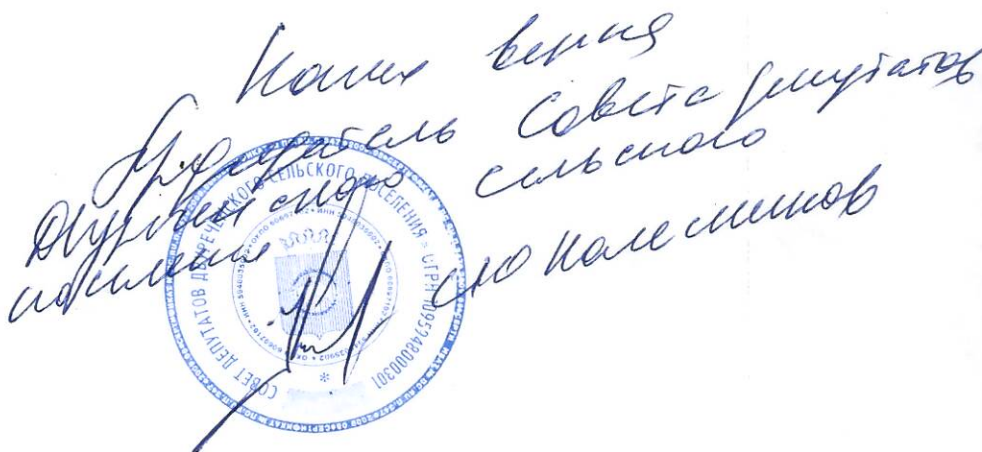 Копия верна
Председатель Совета депутатов
Двуреченского сельского
поселения С.Ю. Колесников
СОВЕТ ДЕПУТАТОВ ДВУРЕЧЕНСКОГО СЕЛЬСКОГО ПОСЕЛЕНИЯ * ОГРН 1095948000301